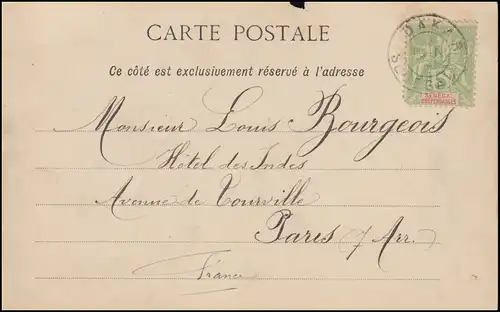 CARTE POSTALE
Ce côté est exclusivement réservé à l'adresse
DAKAR
5
SÉNÉGAL
Monsieur Louis Bourgeois
Hôtel des Indes
Avenue de Tourville
Paris (7 Arr.)
France